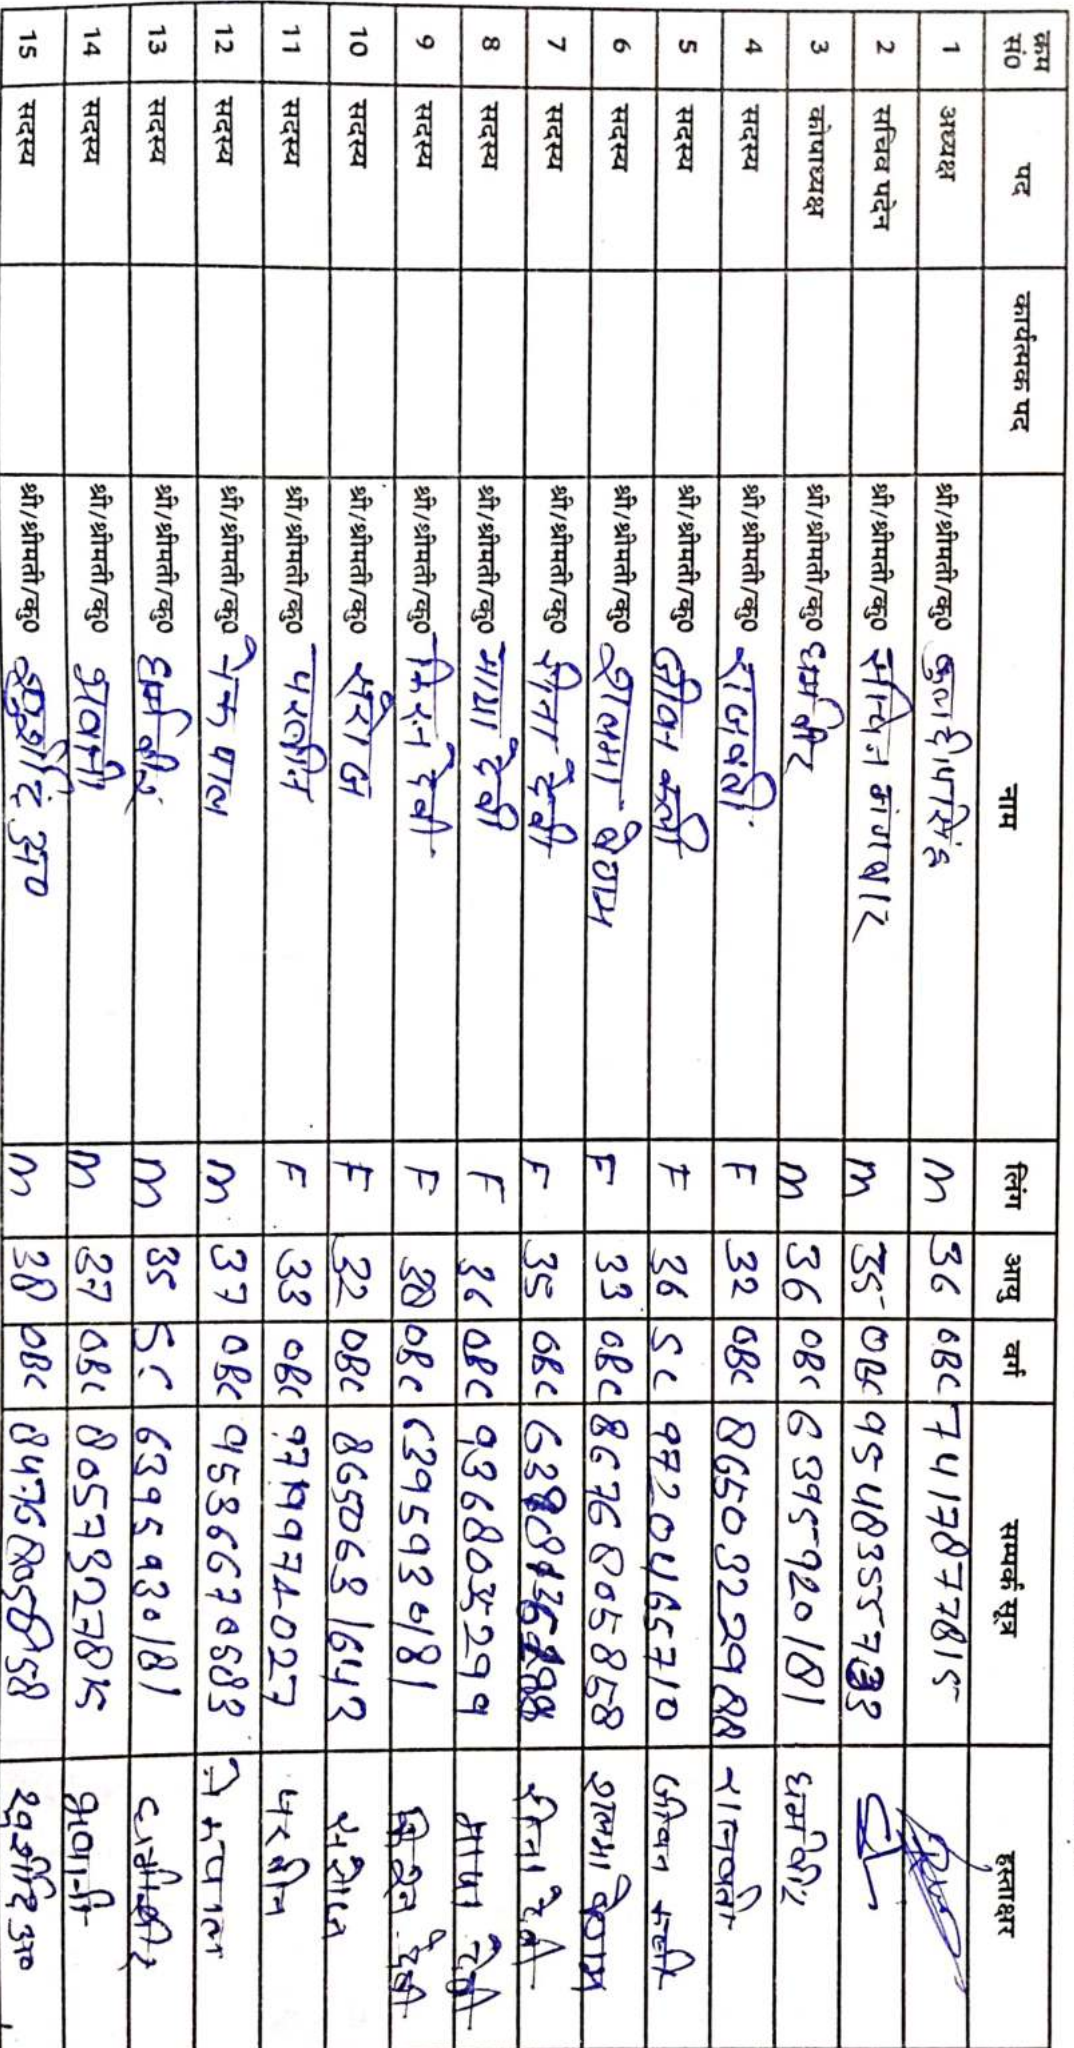 क्रम सं० पद कार्यत्मक पद नाम लिंग आयु वर्ग सम्पर्क सूत्र हस्ताक्षर
1 अध्यक्ष श्री/श्रीमती/कु० कुलदीप सिंह M 36 OBC 7417877815
2 सचिव पदेन श्री/श्रीमती/कु० सचिन गंगवार M 35 OBC 9548355733
3 कोषाध्यक्ष श्री/श्रीमती/कु० धर्मवीर M 36 OBC 6395920181 धर्मवीर
4 सदस्य श्री/श्रीमती/कु० राजवती F 32 OBC 8650322988 राजवती
5 सदस्य श्री/श्रीमती/कु० जीवन कली F 36 SC 9720465710 जीवन कली
6 सदस्य श्री/श्रीमती/कु० शलमा बेगम F 33 OBC 8676805858 शलमा बेगम
7 सदस्य श्री/श्रीमती/कु० रीना देवी F 35 OBC रीना देवी
8 सदस्य श्री/श्रीमती/कु० माया देवी F 36 OBC 9368035299 माया देवी
9 सदस्य श्री/श्रीमती/कु० किरन देवी F 30 OBC 6395930181 किरन देवी
10 सदस्य श्री/श्रीमती/कु० सरोज F 32 OBC 8650631643 सरोज
11 सदस्य श्री/श्रीमती/कु० परवीन F 33 OBC 9719974027 परवीन
12 सदस्य श्री/श्रीमती/कु० नेकपाल M 37 OBC 9536670583 नेकपाल
13 सदस्य श्री/श्रीमती/कु० धर्मवीर M 35 SC 6395930181 धर्मवीर
14 सदस्य श्री/श्रीमती/कु० भवानी M 27 OBC 8057327815 भवानी
15 सदस्य श्री/श्रीमती/कु० खुर्शीद अह० M 38 OBC 8476805858 खुर्शीद अह०